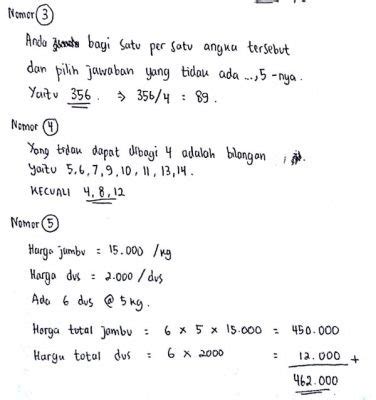 Nomor ③
Anda bagi satu per satu angka tersebut
dan pilih jawaban yang tidak ada ...,5 -nya.
Yaitu 356. ⇒ 356/4 = 89.
Nomor ④
Yang tidak dapat dibagi 4 adalah bilangan ;
yaitu 5,6,7,9,10,11,13,14.
KECUALI 4,8,12
Nomor ⑤
Harga jambu = 15.000 /kg
Harga dus = 2.000 / dus
Ada 6 dus @ 5 kg.
Harga total jambu = 6 × 5 × 15.000 = 450.000
Harga total dus = 6 × 2000 = 12.000 +
462.000